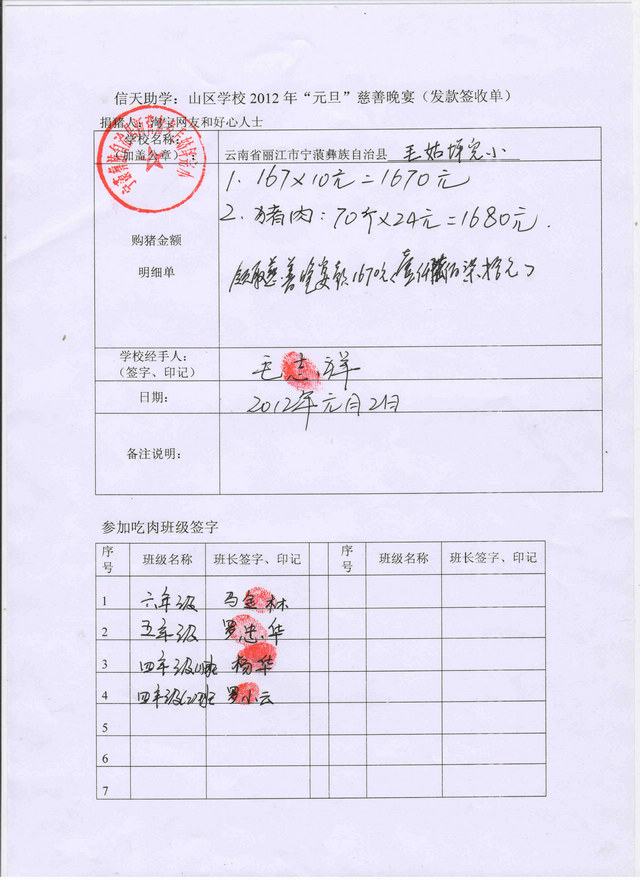 信天助学：山区学校 2012 年“元旦”慈善晚宴（发款签收单）
捐猪人：淘宝网友和好心人士
学校名称：
（加盖公章）：
云南省丽江市宁蒗彝族自治县 毛姑坪完小
购猪金额
明细单
1. 167×10元=1670元
2. 猪肉：70个×24元=1680元.
领取慈善晚宴款1670元（壹仟陆佰柒拾元）
学校经手人：
（签字、印记）
毛志祥
日期：
2012年元月2日
备注说明：
参加吃肉班级签字
序号 班级名称 班长签字、印记 序号 班级名称 班长签字、印记
1 六年级 马金林
2 五年级 罗忠华
3 四年级(1)班 杨华
4 四年级(2)班 罗小云
5
6
7